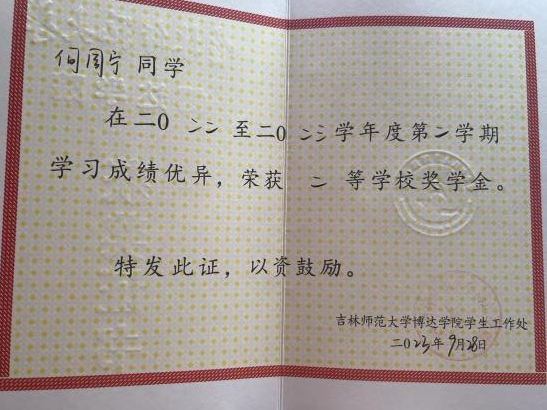 何周宁 同学
在二0二二至二0二三学年度第二学期
学习成绩优异，荣获 二 等学校奖学金。
特发此证，以资鼓励。
吉林师范大学博达学院学生工作处
二023年9月28日